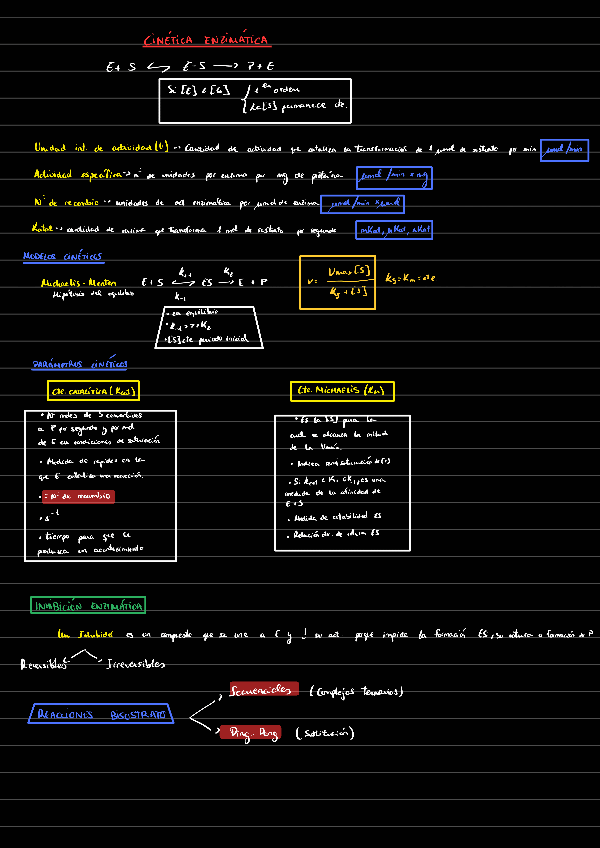 CINÉTICA ENZIMÁTICA
E + S ⟷ E-S ⟶ P + E
Si [E] < [S]
1er orden
[S] permanece cte.
Unidad int. de actividad (U) -- Cantidad de actividad que cataliza la transformación de 1 µmol de sustrato por min
µmol/min
Actividad específica -> nº de unidades por enzima por mg de proteína
µmol/min × mg
Nº de recambio -- unidades de act enzimática por µmol de enzima
µmol/min × µmol
Katal -- cantidad de enzima que transforma 1 mol de sustrato por segundo
mKat, µKat, nKat
MODELOS CINÉTICOS
Michaelis - Menten
Hipótesis del equilibrio
E + S ⟷ ES ⟶ E + P
k+1
k2
k-1
• en equilibrio
• k-1 >> K2
• [S] cte periodo inicial
v = Vmax [S] / Ks + [S]
Ks = Km = cte
PARÁMETROS CINÉTICOS
Cte. CATALÍTICA (Kcat)
• Nº moles de S convertidos
a P por segundo y por mol
de E en condiciones de saturación
• Medida de rapidez en la
que E cataliza una reacción.
• = Nº de recambio
• s⁻¹
• tiempo para que se
produzca un acontecimiento
Cte. MICHAELIS (KM)
• Es la [S] para la
cual se alcanza la mitad
de la Vmáx.
• Indica semisaturación
medida de la afinidad de
E + S
• Medida de estabilidad ES
• Relación
INHIBICIÓN ENZIMÁTICA
Un Inhibidor es un compuesto que se une a E y ↓ su act porque impide la formación ES, su rotura o formación de P
Reversibles
Irreversibles
REACCIONES BISUSTRATO
Secuenciales (Complejos ternarios)
Ping-Pong (Sustitución)